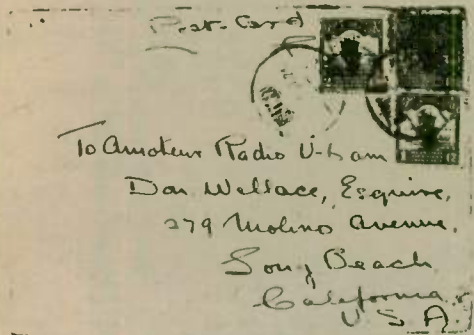 Post-Card
To Amateur Radio U-6am
Don Wallace, Esquire,
279 Molino Avenue,
Long Beach
California
U S A.